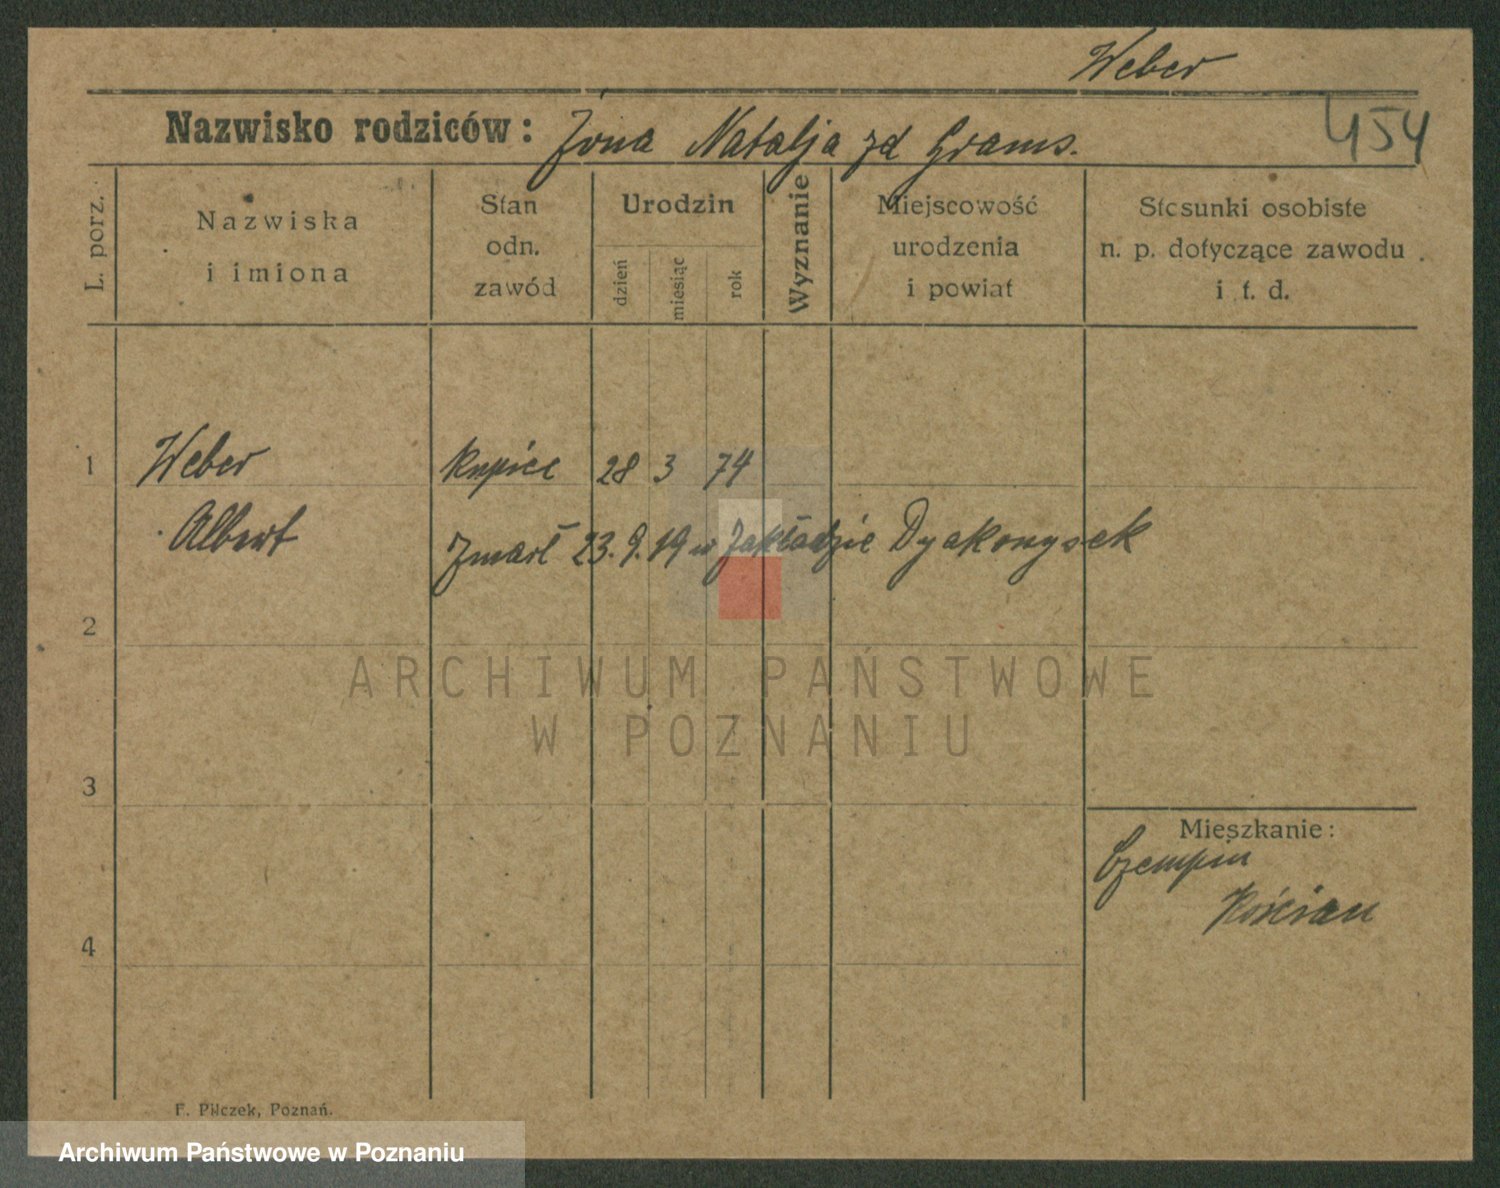 Weber
Nazwisko rodziców: Żona Natalja zd Grams.
454
L. porz.
Nazwiska
i imiona
Stan
odn.
zawód
Urodzin
dzień
miesiąc
rok
Wyznanie
Miejscowość
urodzenia
i powiat
Stosunki osobiste
n. p. dotyczące zawodu
i t. d.
1
Weber
kupiec 28 3 74
Albert
Zmarł 23.9.19 w Zakładzie Dyakonysek
2
ARCHIWUM PAŃSTWOWE
W POZNANIU
3
Mieszkanie:
Czempin
Kościan
4
F. Pilczek, Poznań.
Archiwum Państwowe w Poznaniu